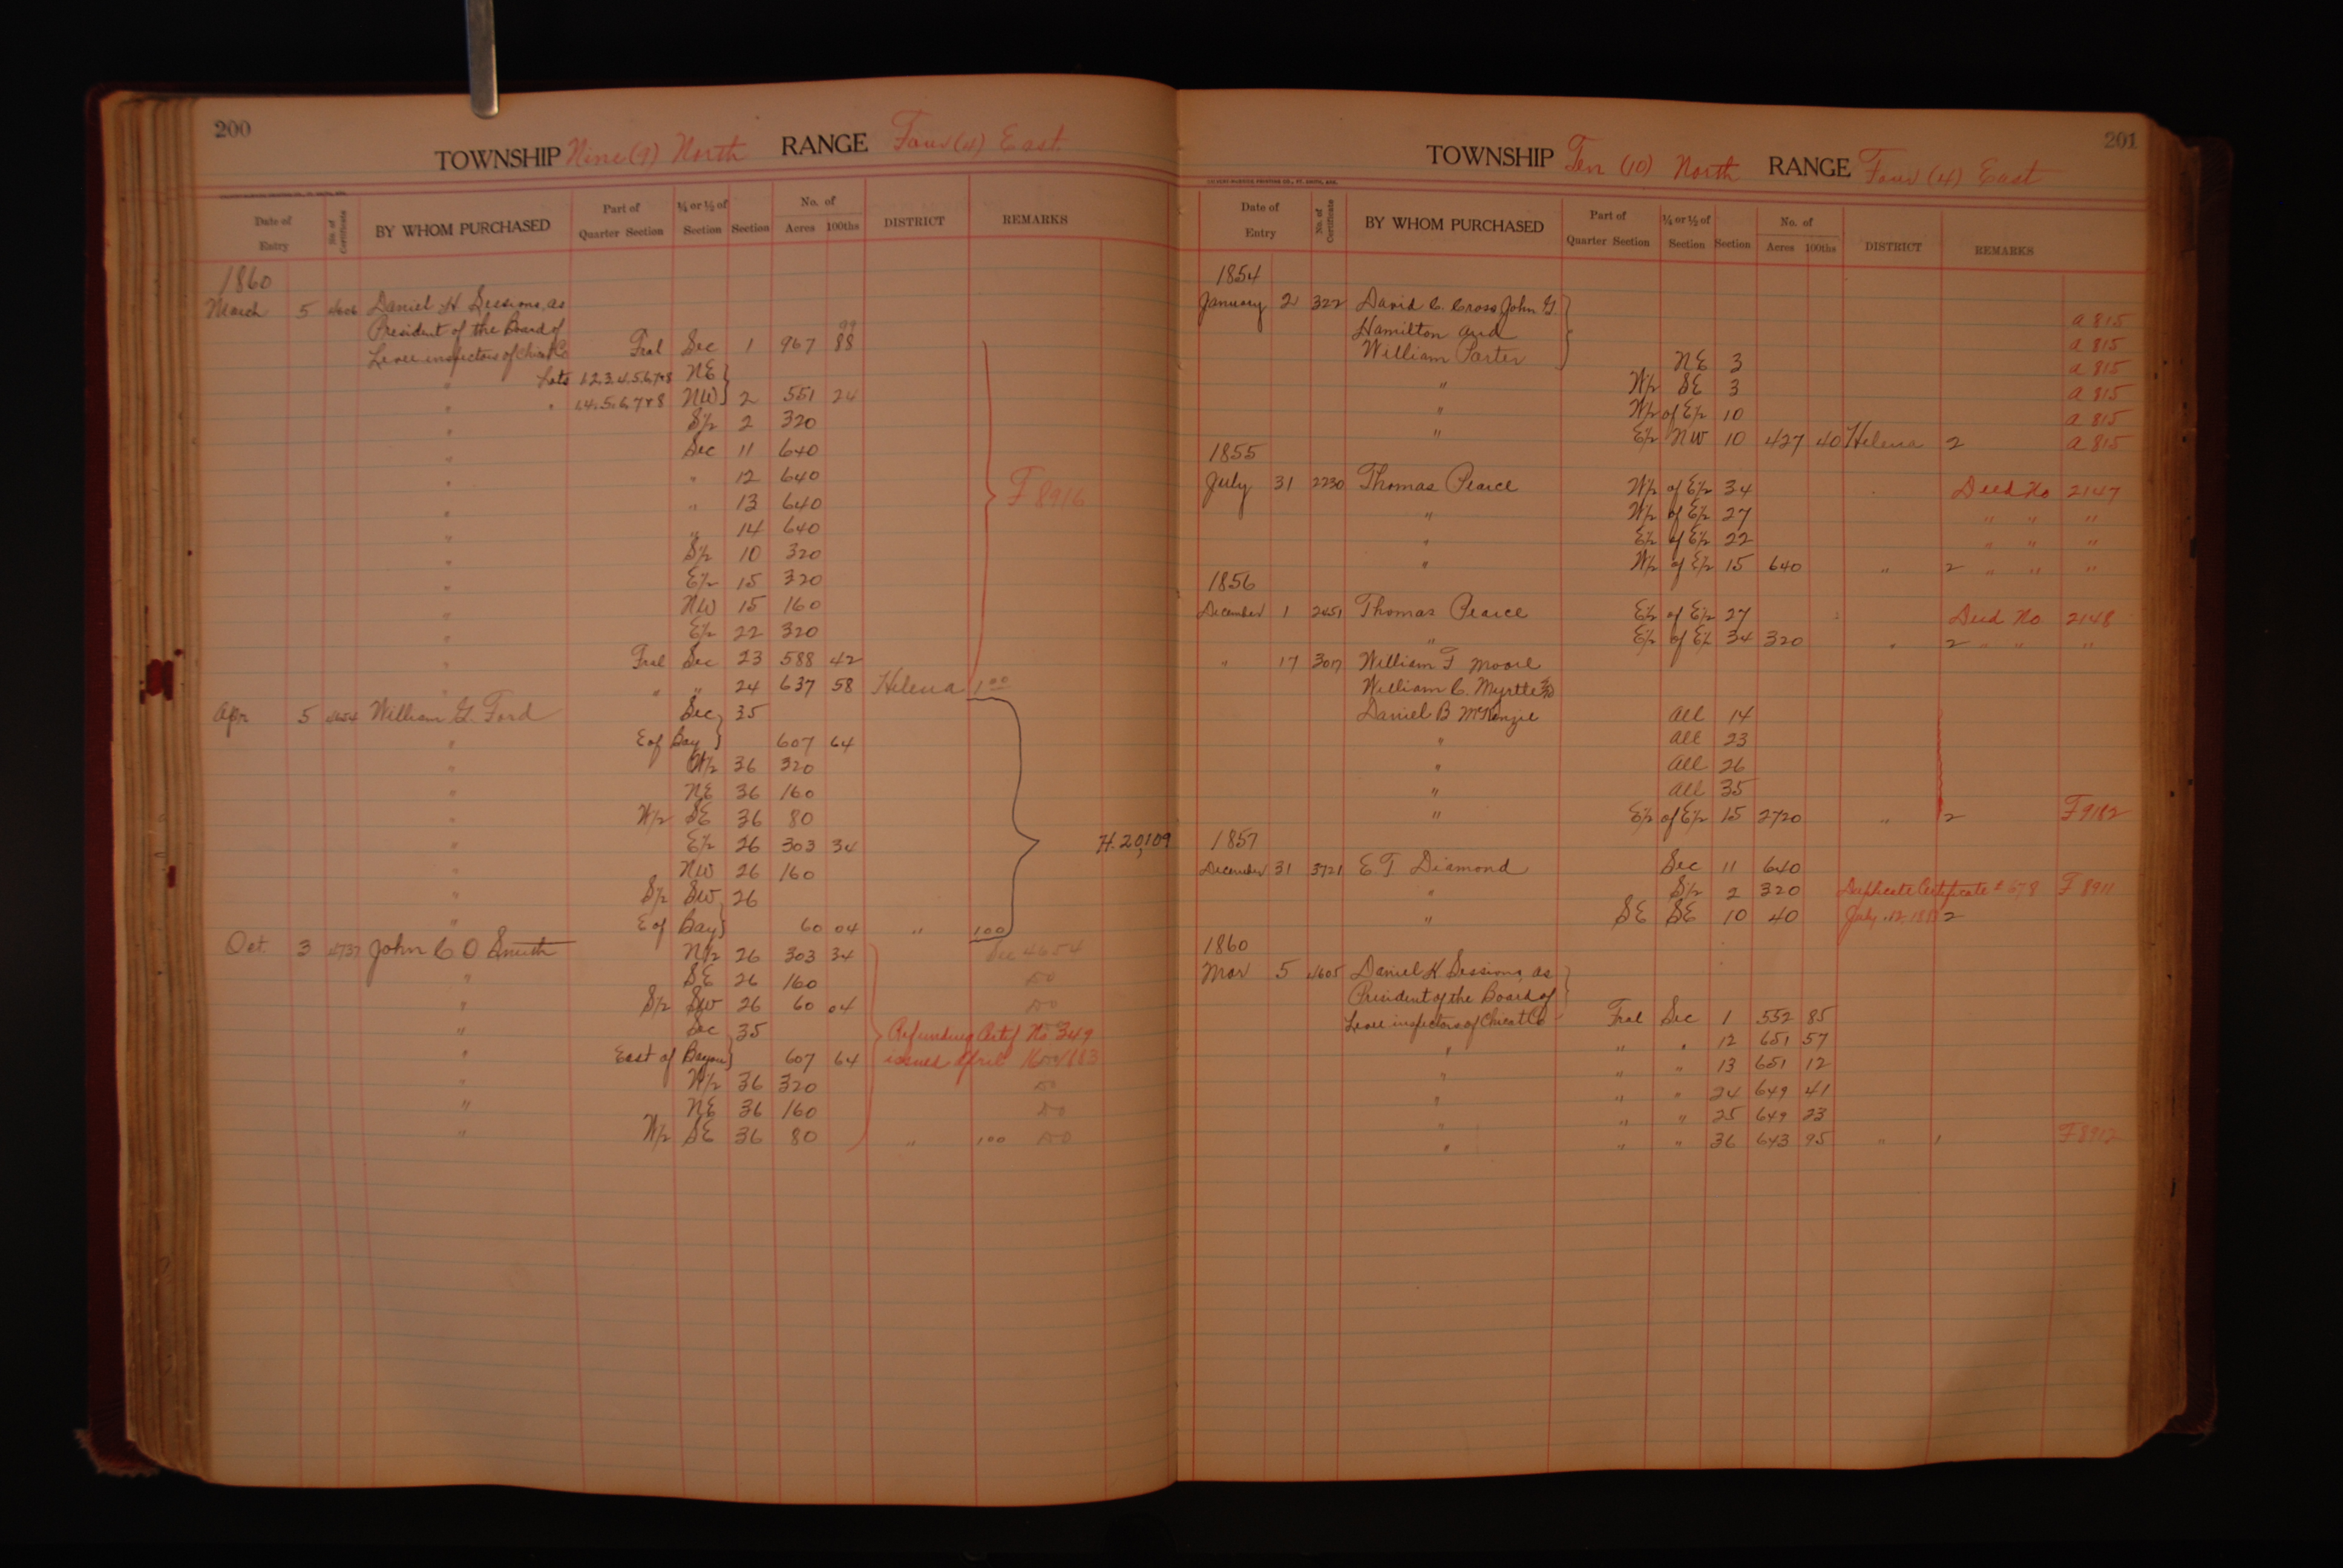 200
TOWNSHIP Nine (9) North RANGE Four (4) East.
Date of Entry No. of Certificate BY WHOM PURCHASED Part of Quarter Section ¼ or ½ of Section Section No. of Acres 100ths DISTRICT REMARKS
1860
March 5 4606 Daniel H. Sessions, as
President of the Board of 99
Levee inspectors of Chicot Co Fral Sec 1 967 88
" Lots 1.2.3.4.5.6.7+8 NE
" " 1.4.5.6.7+8 NW 2 551 24
" S/2 2 320
" Sec 11 640
" " 12 640
" " 13 640 F 8916
" " 14 640
" S/2 10 320
" E/2 15 320
" NW 15 160
" E/2 22 320
" Fral Sec 23 588 42
" " " 24 637 58 Helena 1 00
Apr. 5 4654 William G. Ford Sec 35
" E of Bay 607 64
" W/2 36 320
" NE 36 160
" W/2 SE 36 80
" E/2 26 303 34 H. 20,109
" NW 26 160
" S/2 SW 26
" E of Bay 60 04 " 1 00
Oct. 3 4737 John C O Smith N/2 26 303 34 See 4654
" SE 26 160 Do
" S/2 SW 26 60 04 Do
" Sec 35 Refunding Certif No 349
" East of Bayou 607 64 issued April 16 1883
" W/2 36 320 Do
" NE 36 160 Do
" W/2 SE 36 80 " 1 00 Do
201
TOWNSHIP Ten (10) North RANGE Four (4) East
Date of Entry No. of Certificate BY WHOM PURCHASED Part of Quarter Section ¼ or ½ of Section Section No. of Acres 100ths DISTRICT REMARKS
1854
January 2 322 David C. Cross John G. a 815
Hamilton and a 815
William Porter NE 3 a 815
" W/2 SE 3 a 815
" W/2 of E/2 10 a 815
" E/2 NW 10 427 40 Helena 2 a 815
1855
July 31 2230 Thomas Pearce W/2 of E/2 34 Deed No 2147
" W/2 of E/2 27 " " "
" E/2 of E/2 22 " " "
" W/2 of E/2 15 640 " 2 " " "
1856
December 1 2651 Thomas Pearce E/2 of E/2 27 Deed No 2148
" E/2 of E/2 34 320 " 2 " " "
" 17 3017 William F Moore
William C. Myrtle
Daniel B McKenzie All 14
" All 23
" All 26
" All 35
" E/2 of E/2 15 2720 " 2 F 9182
1857
December 31 3721 E T Diamond Sec 11 640
" S/2 2 320 Duplicate Certificate # 678 F 8911
" SE SE 10 40 July 12 2
1860
Mar 5 4605 Daniel H. Sessions, as
President of the Board of
Levee inspectors of Chicot Co Fral Sec 1 552 85
" " " 12 651 57
" " " 13 651 12
" " " 24 649 41
" " " 25 649 23
" " " 36 643 95 " 1 F 8912